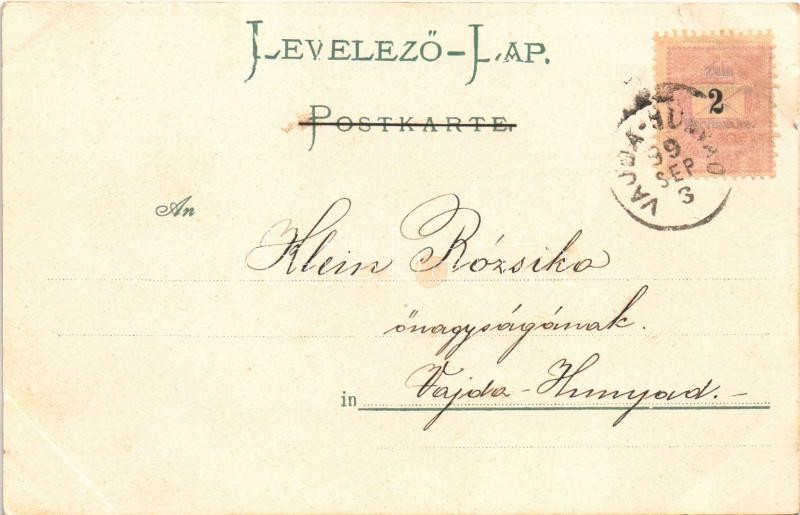 LEVELEZŐ-LAP.
POSTKARTE.
2
VAJDA-HUNYAD
99
SEP
3
An
Klein Rózsika
őnagyságának.
in Vajda-Hunyad.-